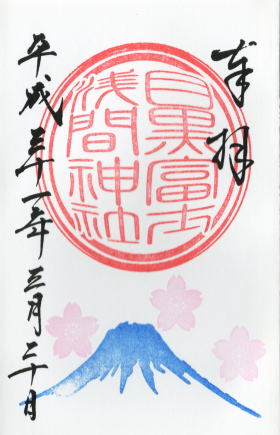 奉拝
目黒富士
浅間神社
平成三十一年三月二十日